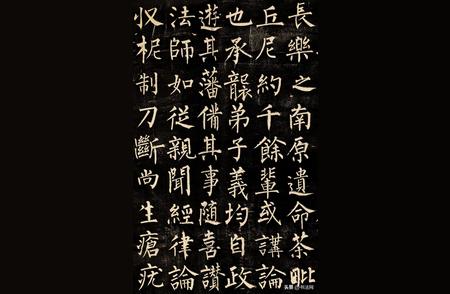 長樂之南原遺命茶毗
丘尼約千餘輩或講論
也承襲弟子義均自政
遊其藩備其事隨喜讚
法師如從親聞經律論
収柅制刀斷尚生瘡疣